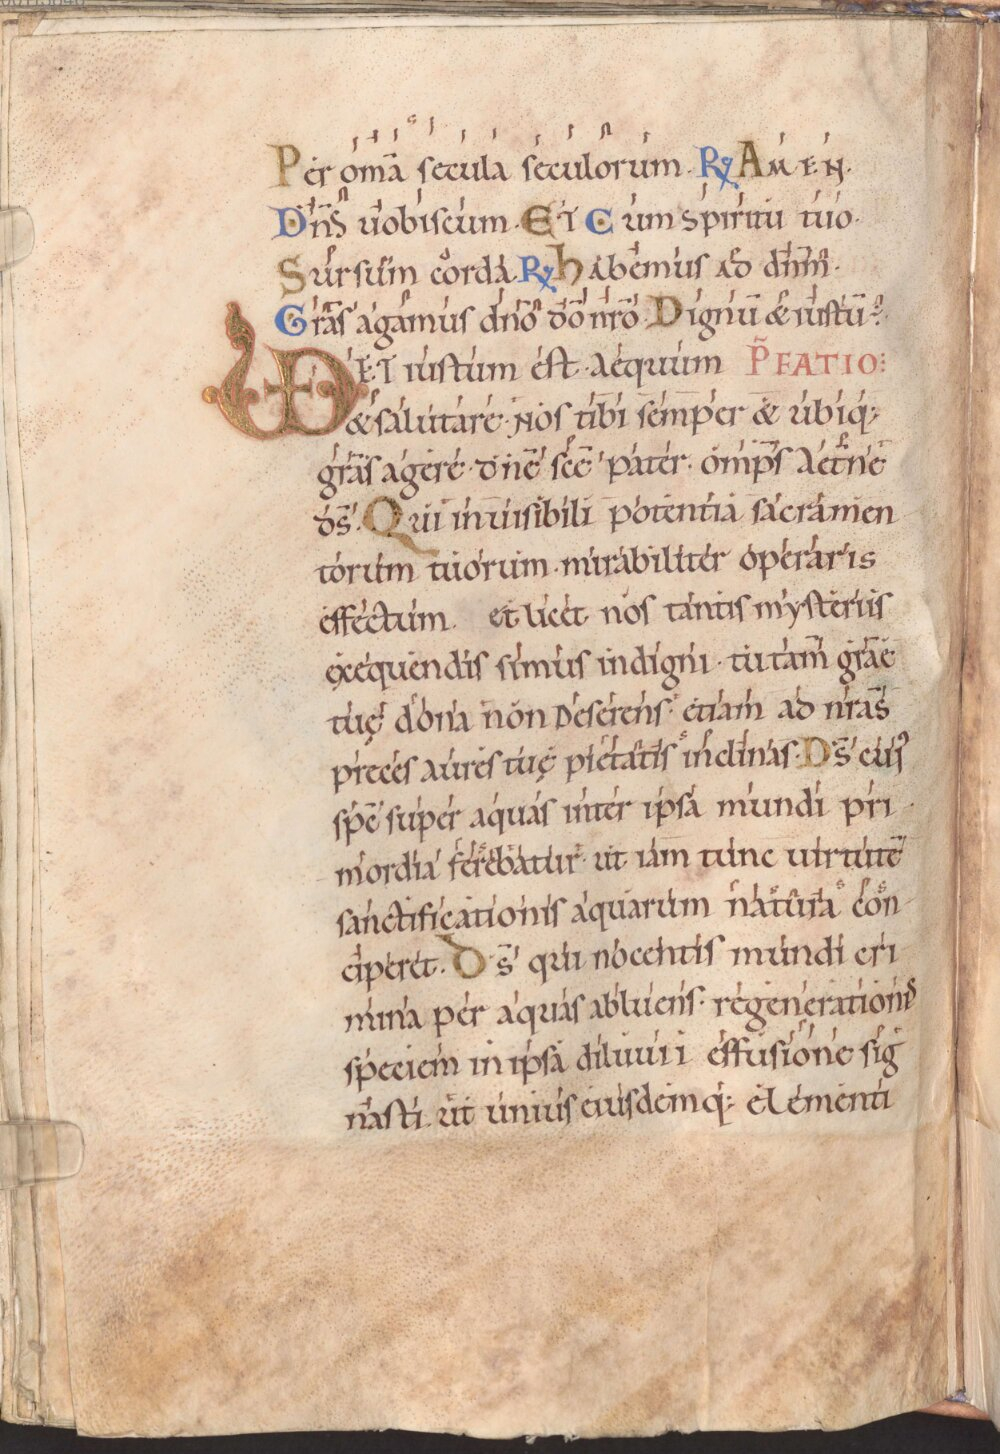 Per om̄a secula seculorum. R̷ Amen.
Dn̄s uobiscum. Et cum spiritu tuo.
Sursum corda. R̷ Habemus ad dn̄m.
Gr̄as agamus dn̄o dō nr̄o. Dignū & iustū :
VERE ET iustum est. Aequum P̄FATIO:
& salutare. Nos tibi semper & ubiq;
gr̄as agere. dn̄e sc̄e pater. omp̄s aet̄ne
ds̄. Qui inuisibili potentia sacramen
torum tuorum. mirabiliter operaris
effectum. et licet nos tantis mysteriis
exequendis simus indigni. tu tam̄ gr̄ae
tuę dona non deserens. etiam ad nr̄as
preces aures tuę pietatis inclinas. Ds̄ cui'
sp̄c super aquas inter ipsa mundi pri
mordia ferebatur. ut iam tunc uirtutē
sanctificationis aquarum natura con
ciperet. Ds̄ qui nocentis mundi cri
mina per aquas abluens. regenerationis
speciem in ipsa diluuii effusione sig
nasti. ut unius eiusdemq; elementi